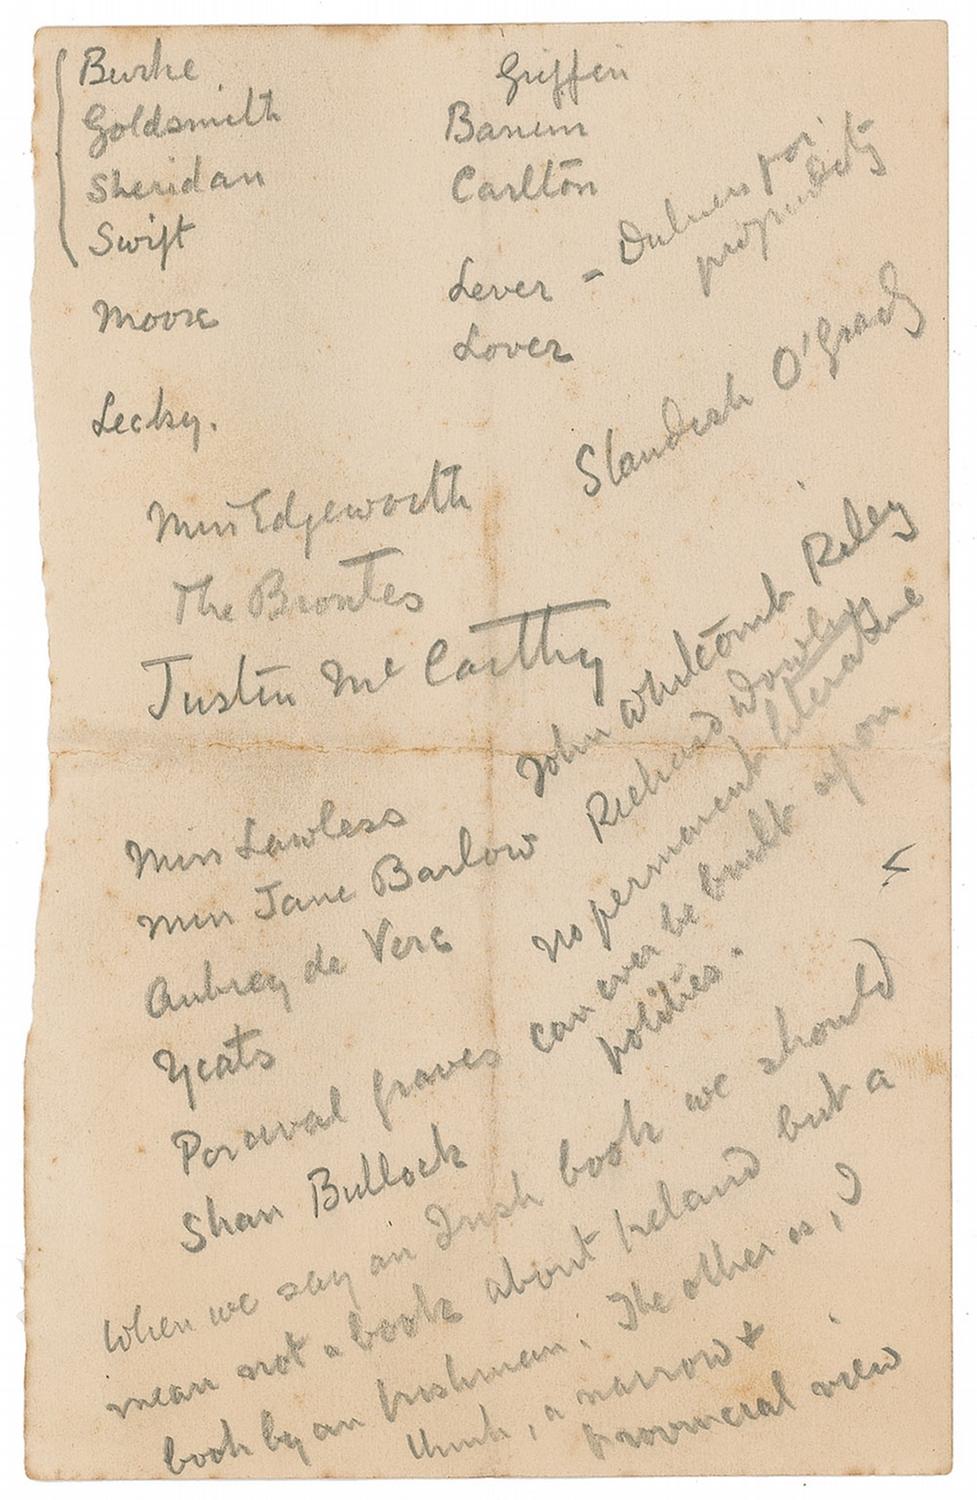 Burke
Goldsmith
Sheridan
Swift
Moore
Lecky.
Griffin
Banim
Carlton
Lever - Dulness or
propriety
Lover
Standish O'Grady
Miss Edgeworth
The Brontes
Justin Mc Carthy
John Whitcomb Riley
Richard Dowling
Miss Lawless
Miss Jane Barlow
Aubrey de Vere
Yeats
Percival Graves
Shan Bullock
no permanent literature
can ever be built upon
politics.
When we say an Irish book we should
mean not a book about Ireland but a
book by an Irishman. The other is, I
think, a narrow &
provincial view